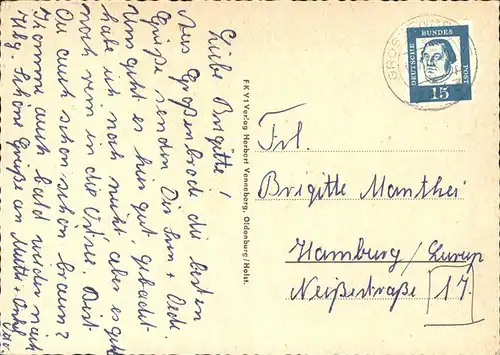 Liebe Brigitte!
Aus Großenbrode die besten
Grüße senden Dir Tom + Oecki.
Uns geht es hier gut, gebadet
habe ich noch nicht, aber es geht
noch rein in die Ostsee. Bist
Du auch schon schön braun?
Komme auch bald wieder nach
Hbg. Schöne Grüße an Mutti + Onkel
FKY1 Verlag Herbert Venneberg, Oldenburg/Holst.
DEUTSCHE BUNDES POST
15
Frl.
Brigitte Manthei
Hamburg/Lurup
Neißestraße 17